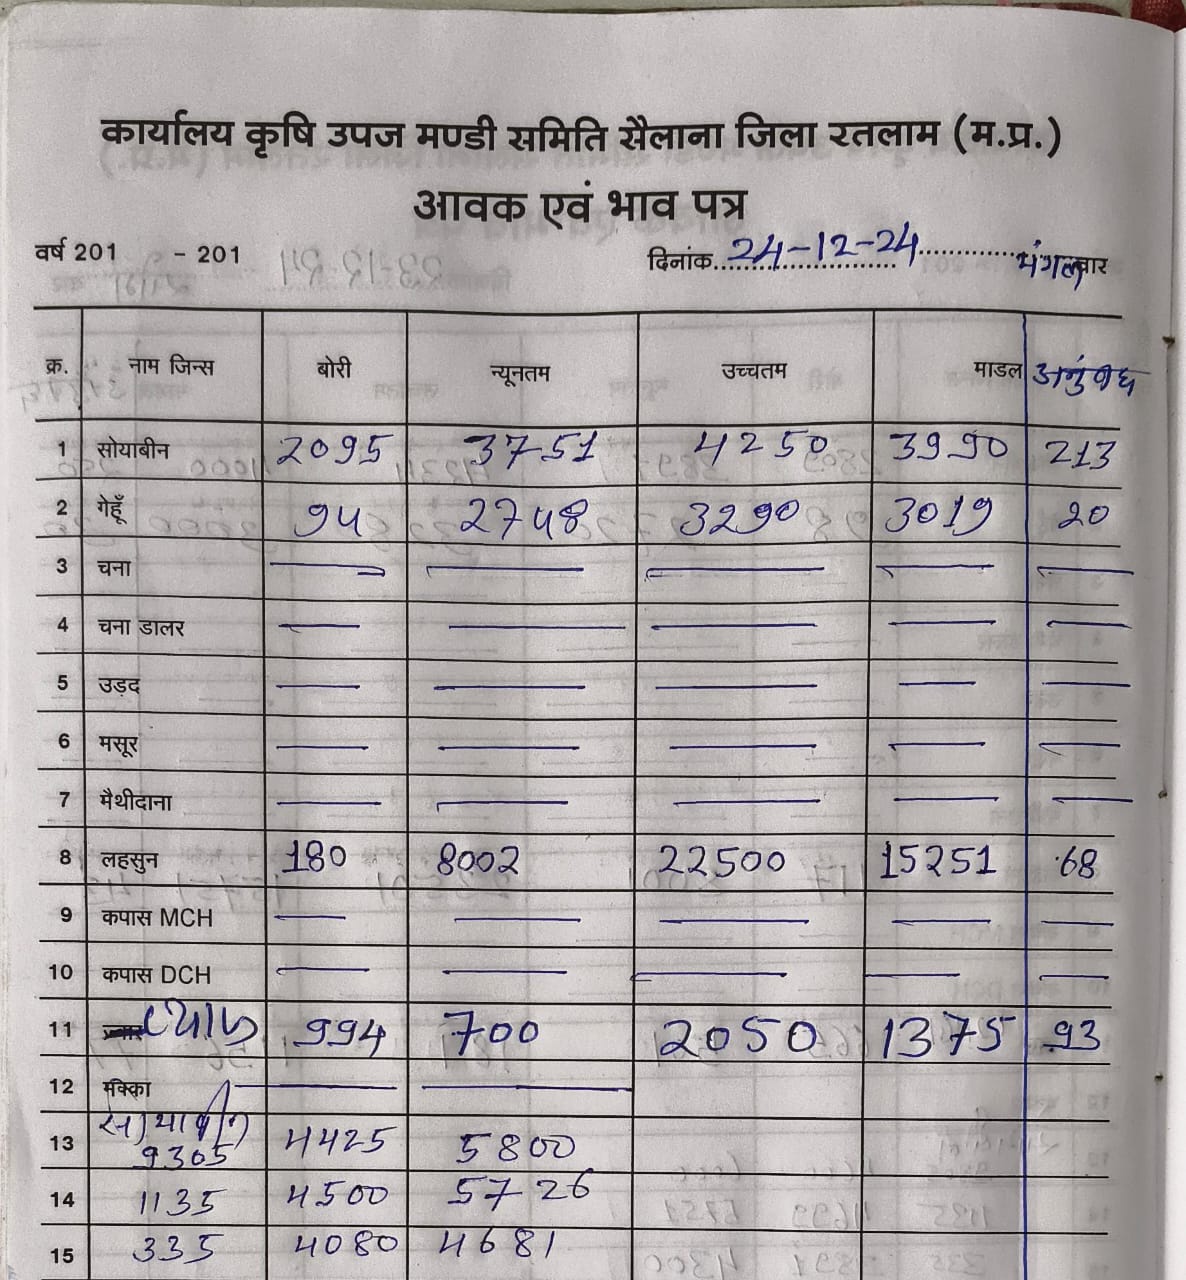 कार्यालय कृषि उपज मण्डी समिति सैलाना जिला रतलाम (म.प्र.)
आवक एवं भाव पत्र
वर्ष 201 - 201 दिनांक 24-12-24 मंगलवार
क्र. नाम जिन्स बोरी न्यूनतम उच्चतम माडल अनुबंध
1 सोयाबीन 2095 3751 4250 3990 213
2 गेहूँ 94 2748 3290 3019 20
3 चना
4 चना डालर
5 उड़द
6 मसूर
7 मैथीदाना
8 लहसुन 180 8002 22500 15251 68
9 कपास MCH
10 कपास DCH
11 प्याज 994 700 2050 1375 93
12 मक्का
सोयाबीन
13 9305 4425 5800
14 1135 4500 5726
15 335 4080 4681